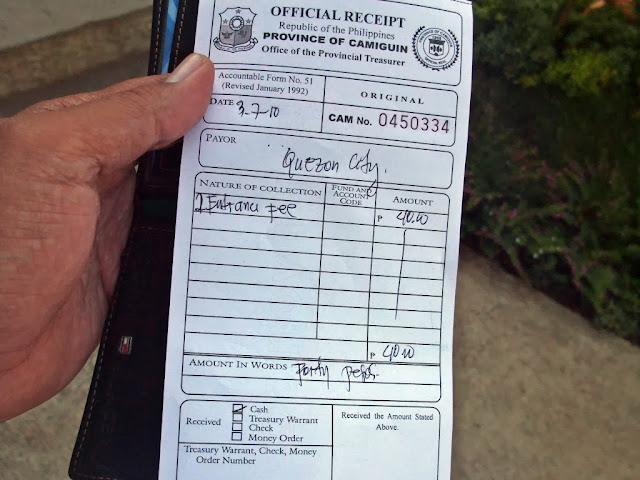 OFFICIAL RECEIPT
Republic of the Philippines
PROVINCE OF CAMIGUIN
Office of the Provincial Treasurer
Accountable Form No. 51
(Revised January 1992)
ORIGINAL
DATE 3-7-10
CAM No. 0450334
PAYOR
Quezon City.
NATURE OF COLLECTION FUND AND ACCOUNT CODE AMOUNT
Entrance Fee P 40.00
P 40.00
AMOUNT IN WORDS Forty pesos.
Received
Cash
Treasury Warrant
Check
Money Order
Received the Amount Stated
Above.
Treasury Warrant, Check, Money
Order Number